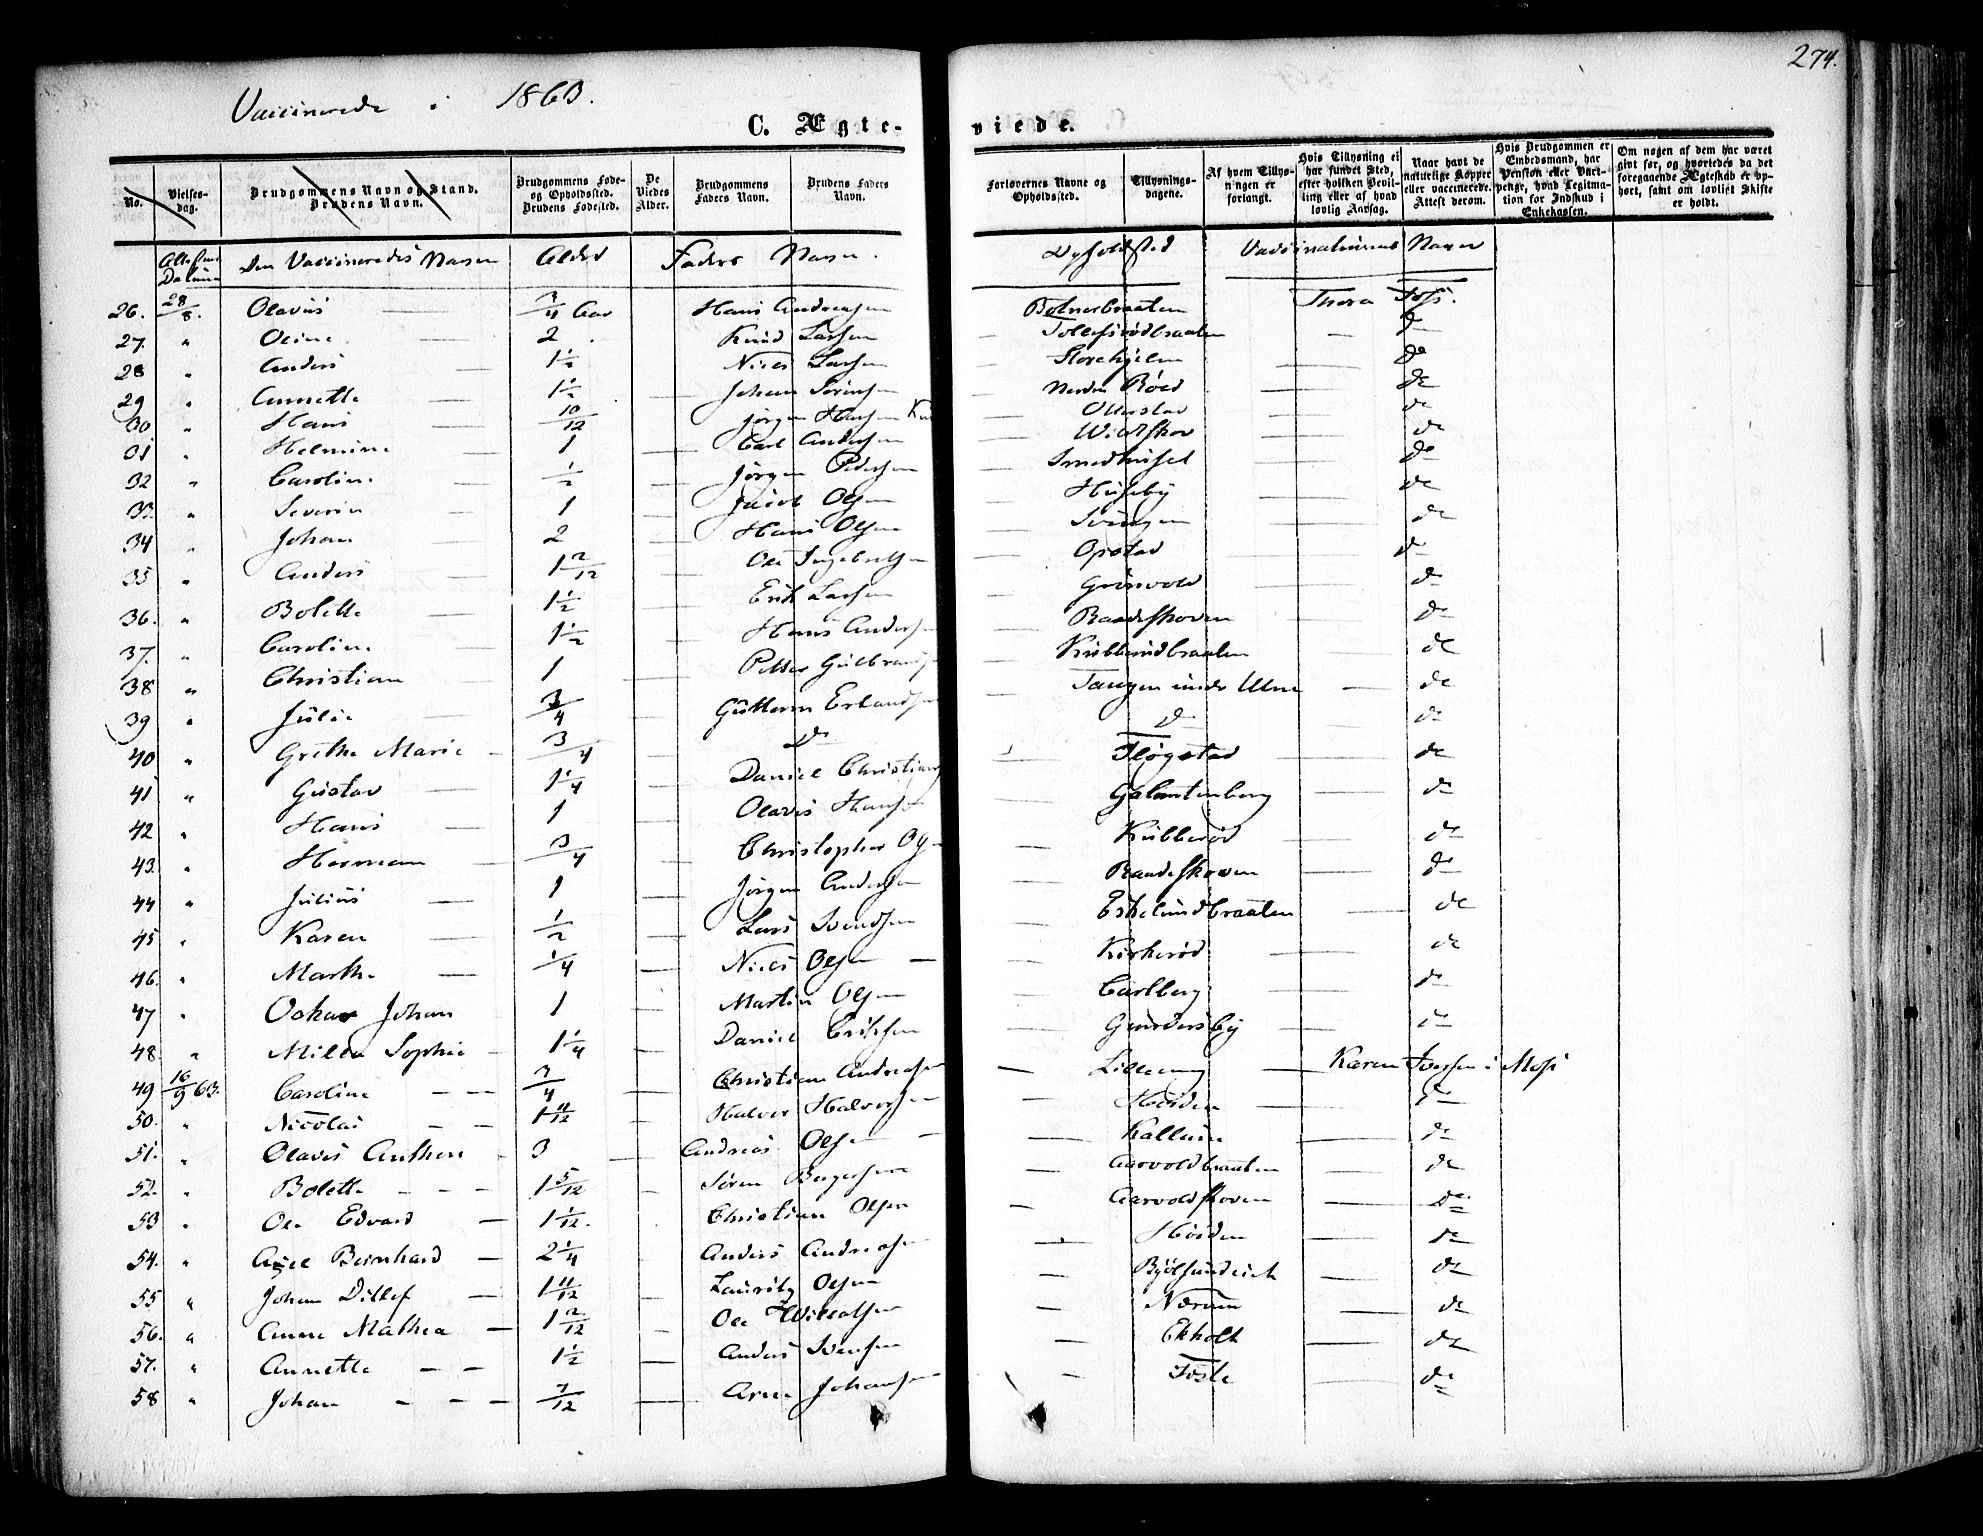 274.
Vaccinerede i 1863.
C. Ægte-viede.
No.
Vielses-dag.
Brudgommens Navn og Stand. Brudens Navn.
Brudgommens Føde- og Opholdssted. Brudens Fødested.
De Viedes Alder.
Brudgommens Faders Navn.
Brudens Faders Navn.
Forlovernes Navne og Opholdssted.
Tillysnings-dagene.
Af hvem Tillysningen er forlangt.
Hvis Tillysning ei har fundet Sted, efter hvilken Bevilling eller af hvad lovlig Aarsag.
Naar havt de naturlige Kopper eller vaccinerede. Attest derom.
Hvis Brudgommen er Embedsmand, har Pension eller Vartpenge, hvad Legitimation for Indskud i Enkekassen.
Om nogen af dem har været givt før, og hvorledes da det foregaaende Ægteskab er ophørt, samt om lovligt Skifte er holdt.
Attestens Datum Den Vaccineredes Navn Alder Faders Navn. Opholdssted Vaccinateurens Navn
26. 28/8. Olavus 3/4 Aar Hans Andreasen Botnerbraaten Thora Foss.
27. " Oline 2 Knud Larsen Tollefsrødbraaten do
28 " Anders 1 1/2 Niels Larsen do
29 " Annette 1 1/2 Johan Sørensen Nedre Röed do
30 " Hans 10/12 Jørgen Hansen Otterstad do
31 " Helmine 1 Carl Andersen Wiidtskov do
32 " Caroline 1/2 Jörgen Pedersen Smedhuset do
33. " Severin 1 Jacob Olsen Huseby do
34 " Johan 2 Hans Olsen Svingen do
35 " Anders 1 2/12 Ole Ingebretsen Opstad do
36. " Bolette 1 1/2 Erik Larsen Grönvold do
37. " Caroline 1 1/2 Hans Andersen Raadeskoven do
38 " Christian 1 Petter Gulbrandsen Kubberudbraaten do
39 " Julie 3/4 Guttorm Erlandsen Tangen under do
40 " Grethe Marie 3/4 do do do
41 " Gustav 1 1/4 Daniel Christians Fløgstad do
42 " Hans 1 Olavus Hansen Galantenberg do
43. " Herman 3/4 Christopher Olsen Kubberød do
44 " Julius 1 Jörgen Andersen Raadeskoven do
45 " Karen 1/2 Lars Svendsen Eskelundbraaten do
46. " Marthe 1/4 Niels Olsen Kirkerød do
47 " Oskar Johan 1 Martin Olsen Carlberg do
48. " Milla Sophie 1 1/4 Daniel Erichsen Gundersby do
49 16/9 63. Caroline 3/4 Christian Andreasen Lilleeng Karen Iversen i Moss
50. " Nicolai 1 11/12 Halvor Halvorsen Höiden do
51. " Olaves Anthon 3 Andreas Olsen Kallum do
52. " Bolette 1 5/12 Søren Birgersen Aarvoldbraaten do
53 " Ole Edvard 1 1/12. Christian Olsen Aarvoldskoven do
54. " Axel Bernhard 2 1/4 Anders Andreasen Höiden do
55 " Johan Ditlef 1 11/12 Lauritz Olsen do
56. " Anne Mathea 1 2/12 Ole Nærum do
57. " Annette 1 1/2 Anders Svensen Ekholt do
58 " Johan 7/12 Arne Johansen do